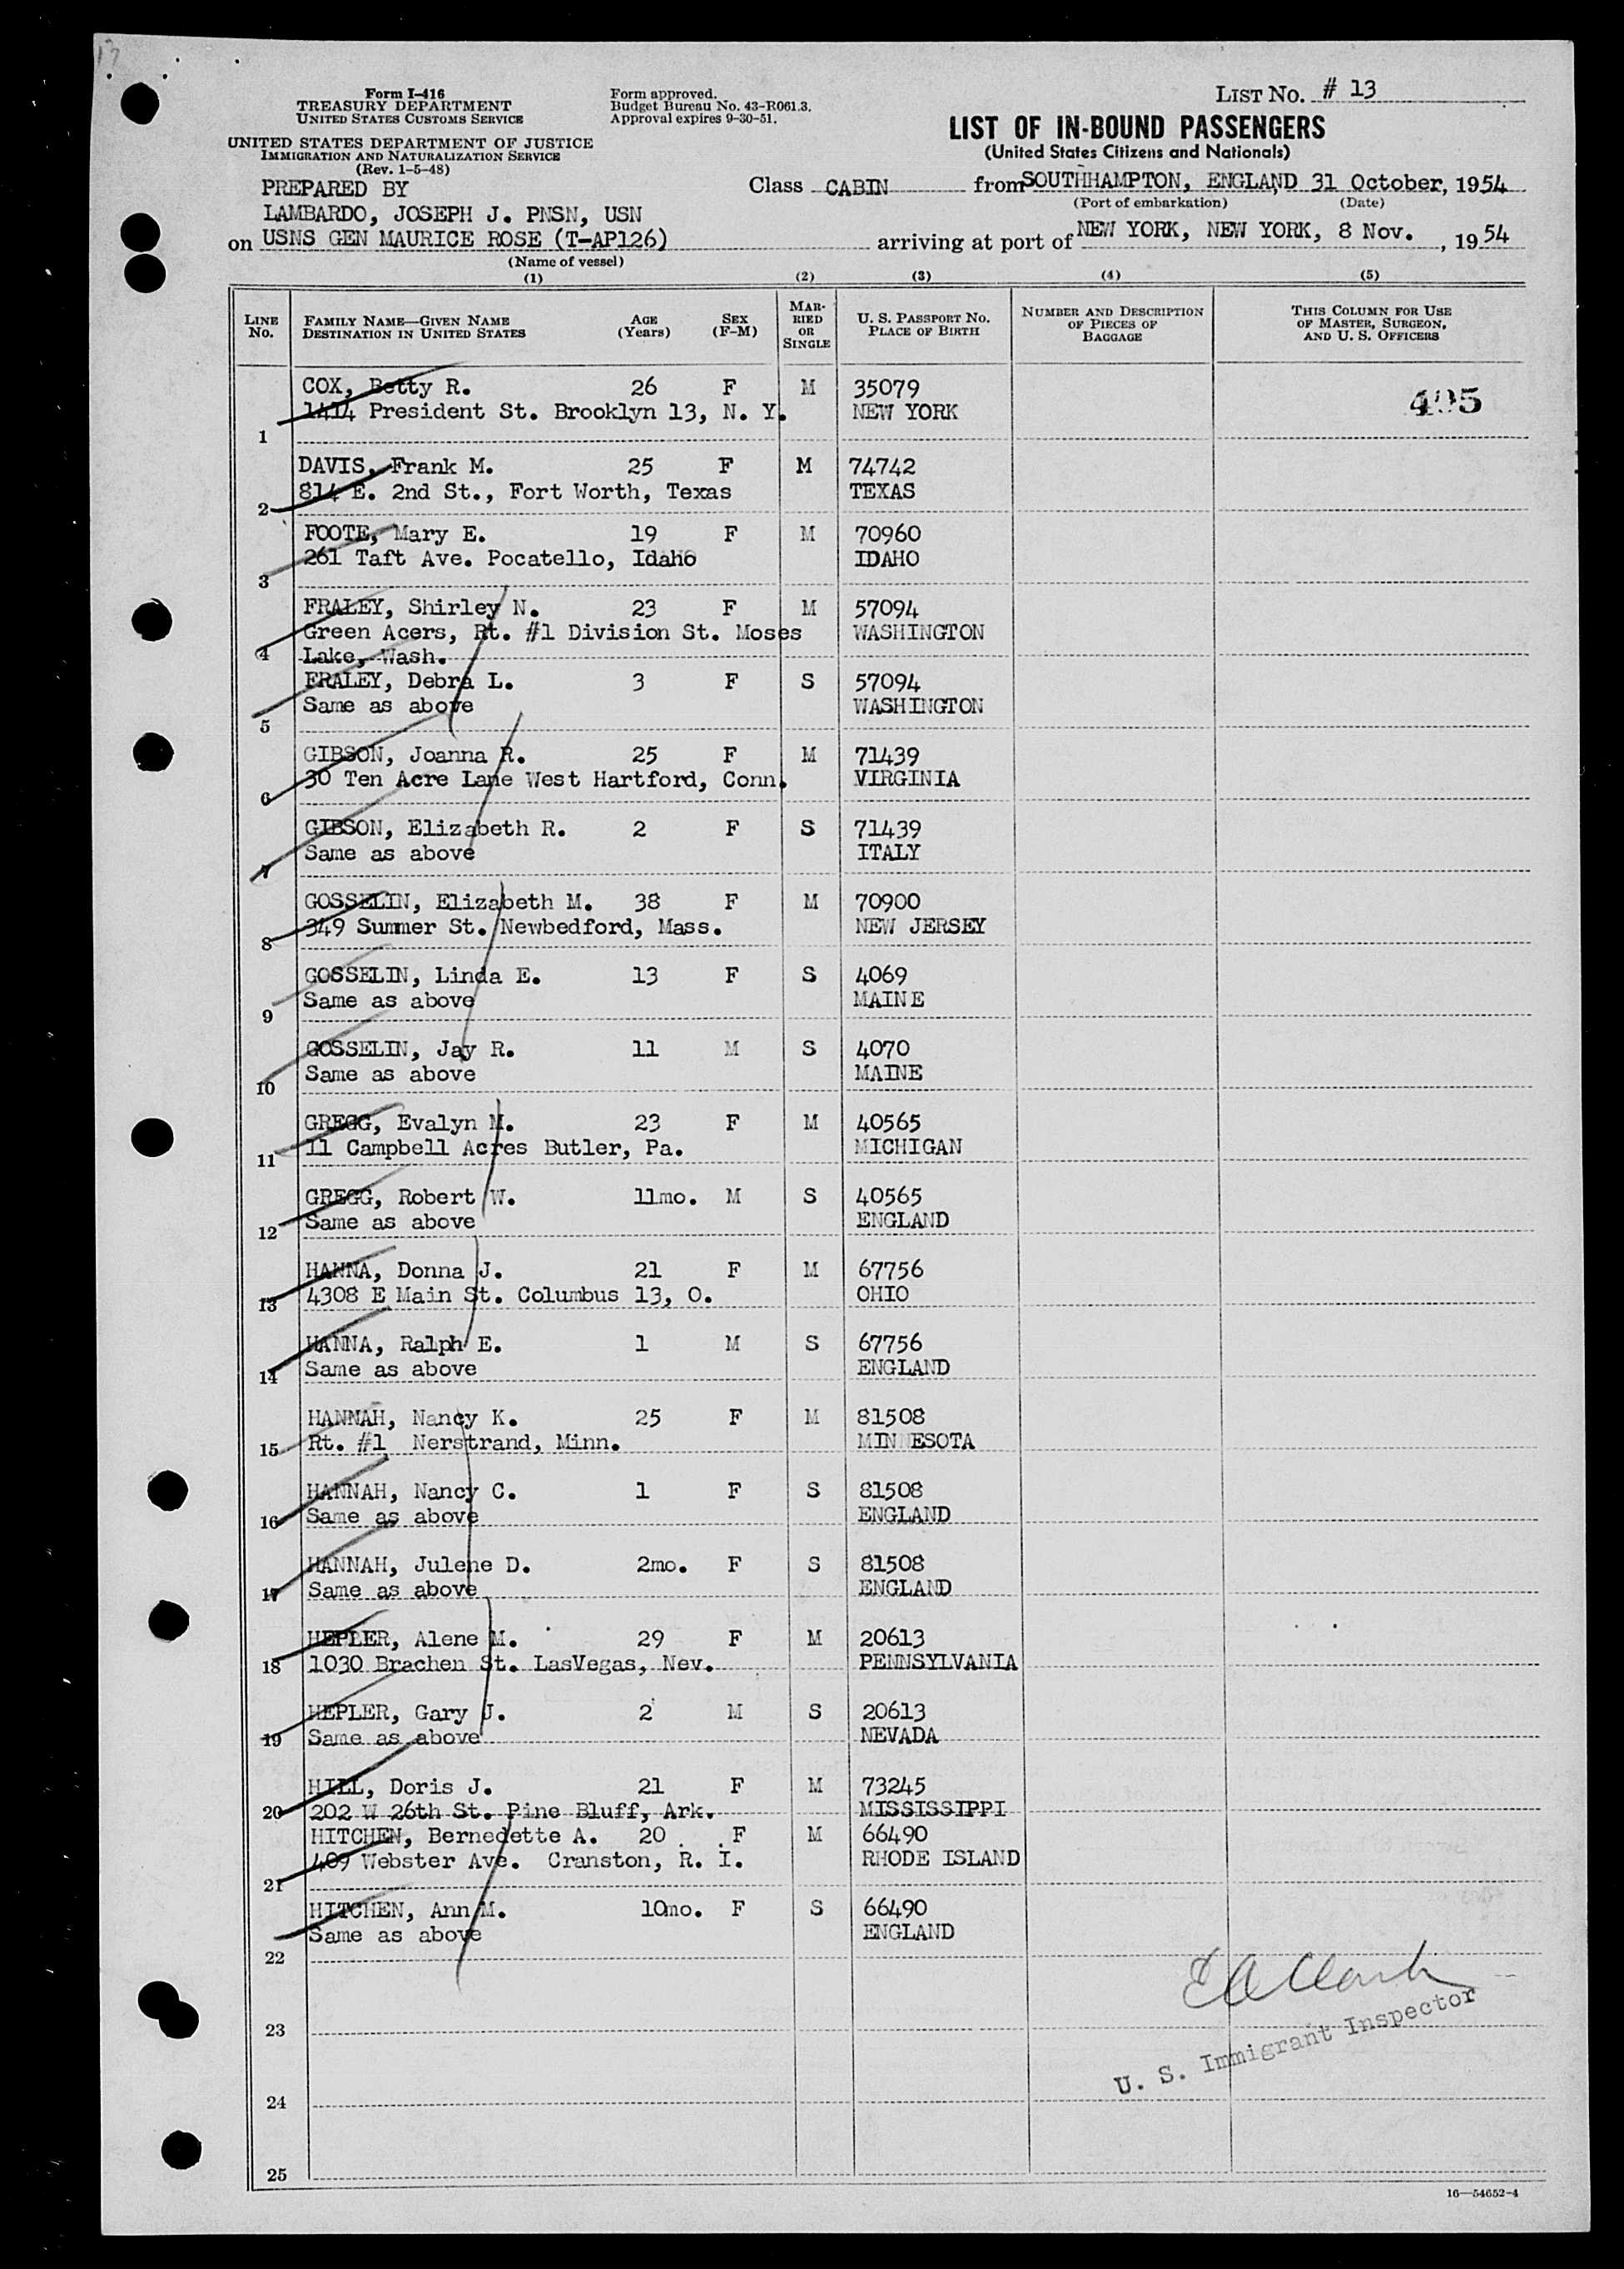 13
Form I-416
TREASURY DEPARTMENT
UNITED STATES CUSTOMS SERVICE
UNITED STATES DEPARTMENT OF JUSTICE
IMMIGRATION AND NATURALIZATION SERVICE
(Rev. 1-5-48)
Form approved.
Budget Bureau No. 43-R061.3.
Approval expires 9-30-51.
LIST NO. # 13
LIST OF IN-BOUND PASSENGERS
(United States Citizens and Nationals)
PREPARED BY
LAMBARDO, JOSEPH J. PNSN, USN
Class CABIN from SOUTHHAMPTON, ENGLAND 31 October, 1954
(Port of embarkation) (Date)
on USNS GEN MAURICE ROSE (T-AP126) arriving at port of NEW YORK, NEW YORK, 8 Nov. , 1954
(Name of vessel)
(1) (2) (3) (4) (5)
LINE No. FAMILY NAME—GIVEN NAME DESTINATION IN UNITED STATES AGE (Years) SEX (F-M) MARRIED OR SINGLE U. S. PASSPORT NO. PLACE OF BIRTH NUMBER AND DESCRIPTION OF PIECES OF BAGGAGE THIS COLUMN FOR USE OF MASTER, SURGEON, AND U. S. OFFICERS
COX, Betty R. 26 F M 35079 405
1414 President St. Brooklyn 13, N. Y. NEW YORK
1
DAVIS, Frank M. 25 F M 74742
814 E. 2nd St., Fort Worth, Texas TEXAS
2
FOOTE, Mary E. 19 F M 70960
261 Taft Ave. Pocatello, Idaho IDAHO
3
FRALEY, Shirley N. 23 F M 57094
Green Acers, Rt. #1 Division St. Moses WASHINGTON
4 Lake, Wash.
FRALEY, Debra L. 3 F S 57094
Same as above WASHINGTON
5
GIBSON, Joanna R. 25 F M 71439
30 Ten Acre Lane West Hartford, Conn. VIRGINIA
6
GIBSON, Elizabeth R. 2 F S 71439
Same as above ITALY
7
GOSSELIN, Elizabeth M. 38 F M 70900
349 Summer St. Newbedford, Mass. NEW JERSEY
8
GOSSELIN, Linda E. 13 F S 4069
Same as above MAINE
9
GOSSELIN, Jay R. 11 M S 4070
Same as above MAINE
10
GREGG, Evalyn M. 23 F M 40565
11 Campbell Acres Butler, Pa. MICHIGAN
11
GREGG, Robert W. 11mo. M S 40565
Same as above ENGLAND
12
HANNA, Donna J. 21 F M 67756
4308 E Main St. Columbus 13, O. OHIO
13
HANNA, Ralph E. 1 M S 67756
Same as above ENGLAND
14
HANNAH, Nancy K. 25 F M 81508
15 Rt. #1 Nerstrand, Minn. MINNESOTA
HANNAH, Nancy C. 1 F S 81508
16 Same as above ENGLAND
HANNAH, Julene D. 2mo. F S 81508
17 Same as above ENGLAND
HEPLER, Alene M. 29 F M 20613
18 1030 Brachen St. LasVegas, Nev. PENNSYLVANIA
HEPLER, Gary J. 2 M S 20613
19 Same as above NEVADA
HILL, Doris J. 21 F M 73245
20 202 W 26th St. Pine Bluff, Ark. MISSISSIPPI
HITCHEN, Bernedette A. 20 F M 66490
409 Webster Ave. Cranston, R. I. RHODE ISLAND
21
HITCHEN, Ann M. 10mo. F S 66490
Same as above ENGLAND
22
E A Clark
23
U. S. Immigrant Inspector
24
25
16—54652-4